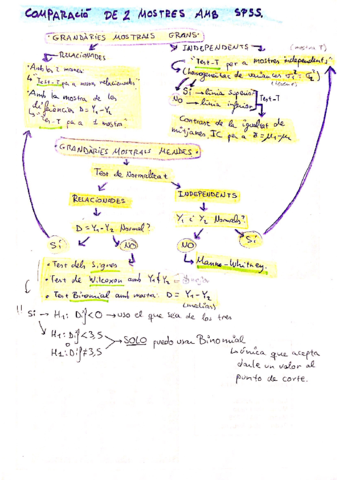 COMPARACIÓ DE 2 MOSTRES AMB SPSS.
GRANDÀRIES MOSTRALS GRANS:
RELACIONADES
INDEPENDENTS
(mostra T)
· Amb les 2 mostres:
↳ Test-T per a mostres relacionades
· Amb la mostra de les diferències, D = Y₁ - Y₂
↳ Test-T per a 1 mostra
"Test-T per a mostres independents"
(homogeneïtat de variances
Sí → línia superior
NO → línia inferior
Test-T
Contrast de la igualtat de mitjanes, IC per a
GRANDÀRIES MOSTRALS MENUDES
Test de Normalitat
RELACIONADES
INDEPENDENTS
D = Y₁ - Y₂ Normal?
Y₁ i Y₂ Normals?
SÍ
NO
NO
SÍ
· Test dels Signes
· Test de Wilcoxon amb Y₁ Y₂
· Test Binomial amb mostra: D = Y₁ - Y₂
Mann-Whitney
!! Si → H₁: D < 0 → uso el que sea de los tres
H₁: D < 3,5
o
H₁: D ≠ 3,5
SOLO puedo usar Binomial
↳ única que acepta
darle un valor al
punto de corte.